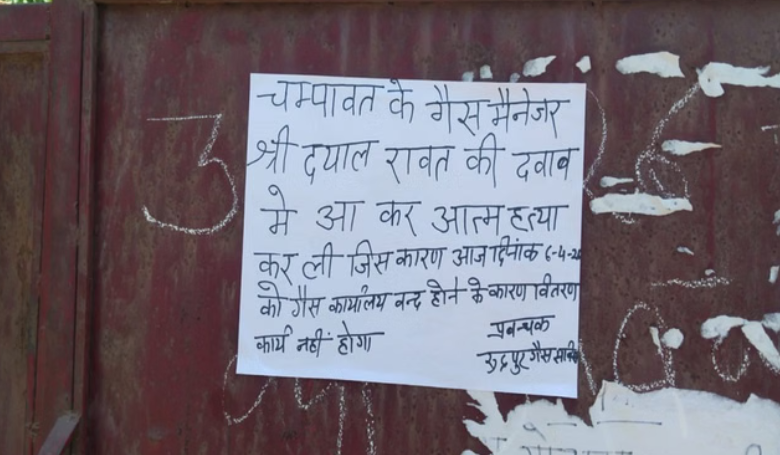 चम्पावत के गैस मैनेजर
श्री दयाल रावत की दवाब
मे आ कर आत्म हत्या
कर ली जिस कारण आज दिनांक 6-4-20
को गैस कार्यालय बन्द होने के कारण वितरण
कार्य नहीं होगा
प्रबन्धक
रुद्रपुर गैस
3
26